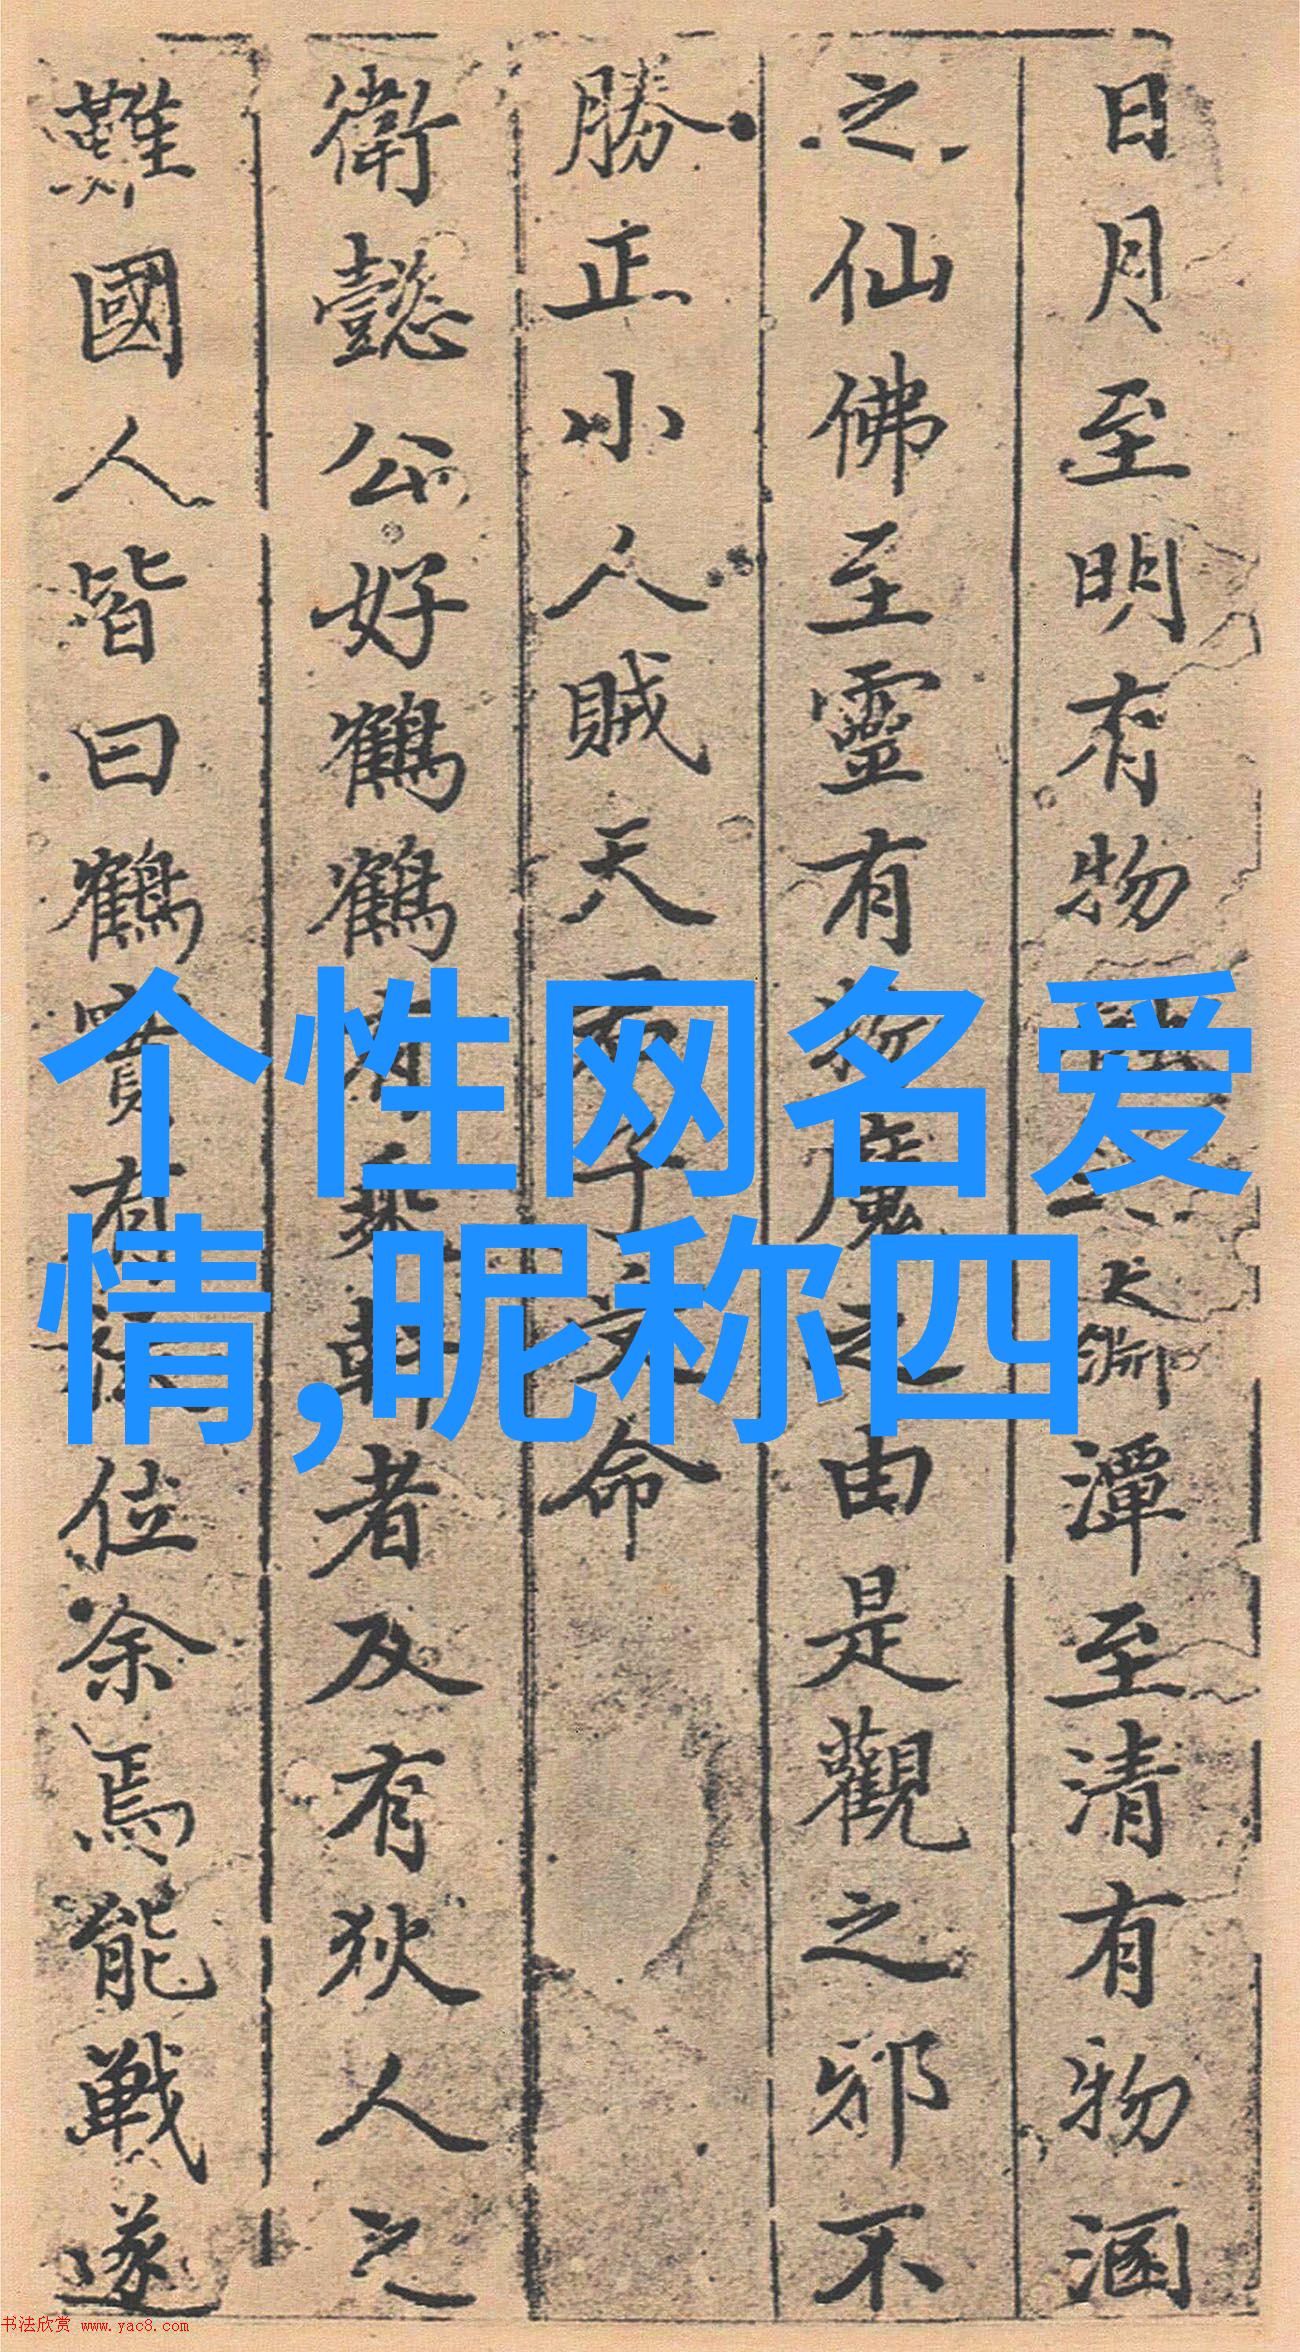 日月至明有物之大淵潭至清有物涵
之仙佛至靈有物魔之由是觀之邪不
勝正小人賊天君子命
衛懿公好鶴鶴有乘軒者及有狄人之
難國人皆曰鶴實有祿位余焉能戰遂
个性网名爱
情,昵称四
书法欣赏 www.yac8.com